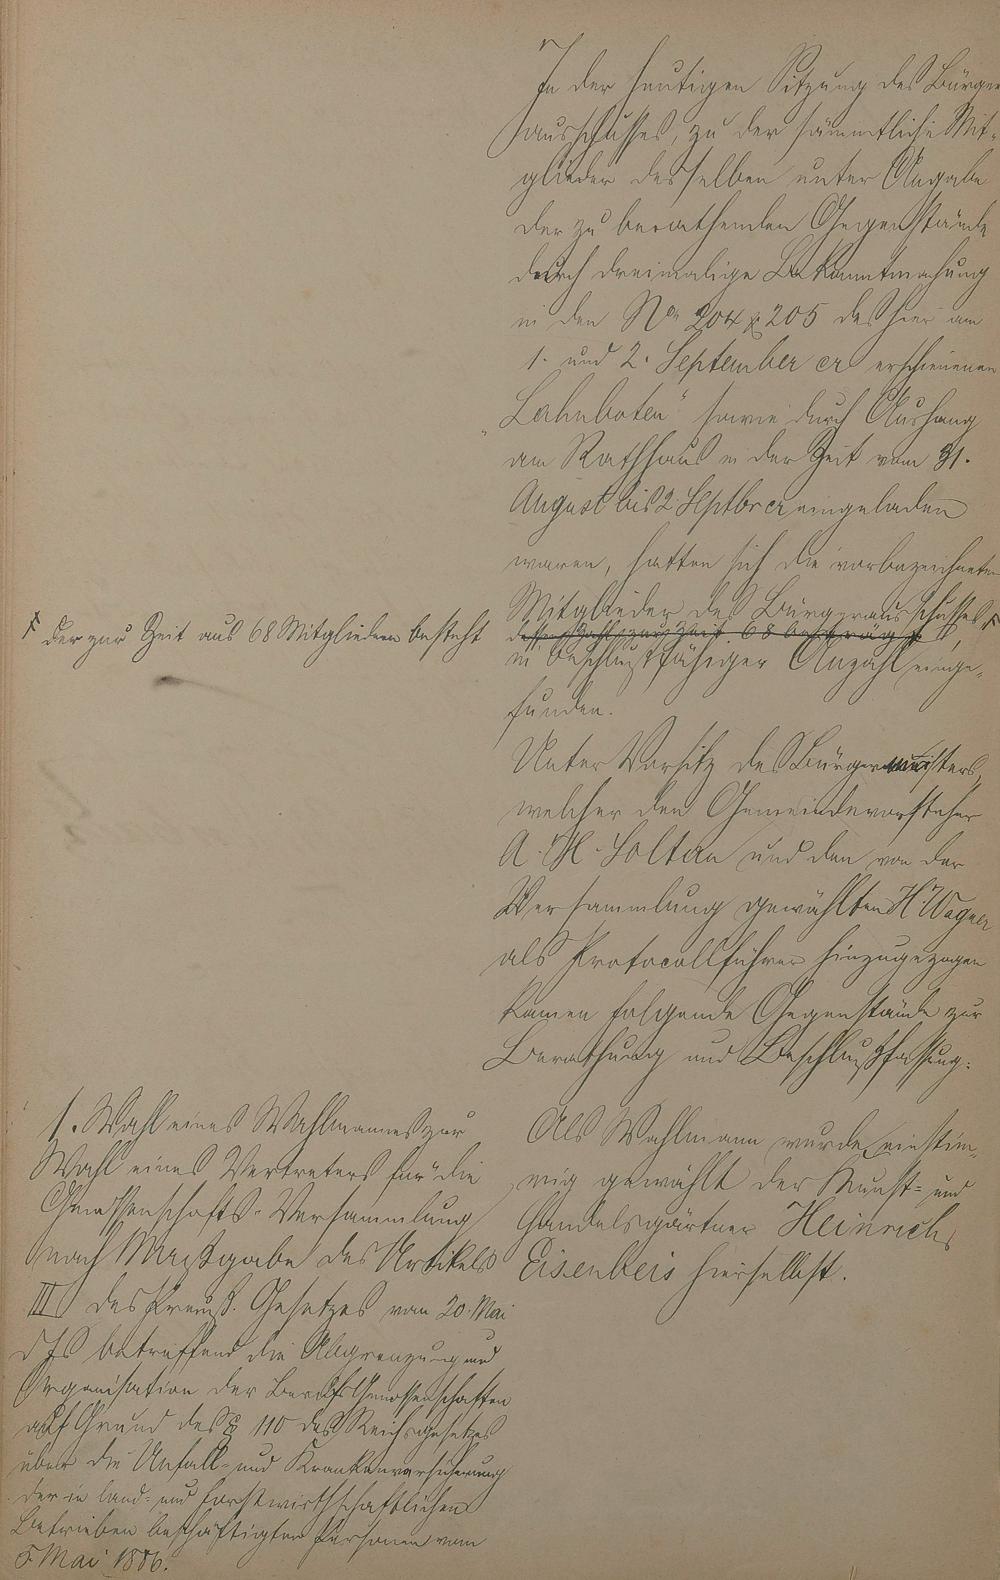 In der heutigen Sitzung des Bürger
ausschusses, zu der sämmtliche Mit-
glieder desselben unter Angabe
der zu berathenden Gegenstände
durch dreimalige Bekanntmachung
in den No 204 & 205 des hier am
1. und 2. September cr erschienenen
„Lahnboten" sowie durch Aushang
am Rathhaus in der Zeit vom 31.
August bis 2 Septbr cr eingeladen
waren, hatten sich die vorbezeichneten
Mitglieder des Bürgerausschusses
dessen Zahl zur Zeit 68 beträgt
der zur Zeit aus 68 Mitgliedern besteht
in beschlußfähiger Anzahl einge-
funden.
Unter Vorsitz des Bürgermeisters,
welcher den Gemeindevorsteher
A. H. Soltan und den von der
Versammlung gewählten H. Wagner
als Protocollführer hinzugezogen
kamen folgende Gegenstände zur
Berathung und Beschlußfassung.
1. Wahl eines Wahlmannes zur
Wahl eines Vertreters für die
Genossenschafts-Versammlung
nach Maßgabe des Artikels
III des Preuß. Gesetzes vom 20. Mai
d Js betreffend die Abgrenzung und
Organisation der Berufsgenossenschaften
auf Grund des § 110 des Reichsgesetzes
über die Unfall- und Krankenversicherung
der in land- und forstwirthschaftlichen
Betrieben beschäftigten Personen vom
5 Mai 1886.
Als Wahlmann wurde einstim-
mig gewählt der Kunst- und
Handelsgärtner Heinrich
Eisenbeis hierselbst.